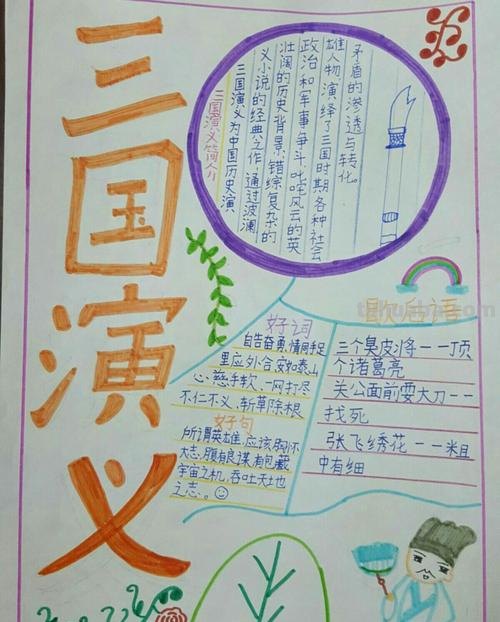 三国演义
三国演义简介
三国演义为中国历史演
义小说的经典之作,通过波澜
壮阔的历史背景,错综复杂的
政治和军事争斗,叱咤风云的英
雄人物,演绎了三国时期各种社会
矛盾的渗透与转化。
好词
自告奋勇,情同手足
里应外合,安如泰山
心慈手软,一网打尽
不仁不义,斩草除根
好句
所谓英雄,应该胸怀
大志,腹有良谋,有包藏
宇宙之机,吞吐天地
之志。
歇后语
三个臭皮将一一顶
个诸葛亮
关公面前耍大刀一一
找死
张飞绣花一一粗
中有细